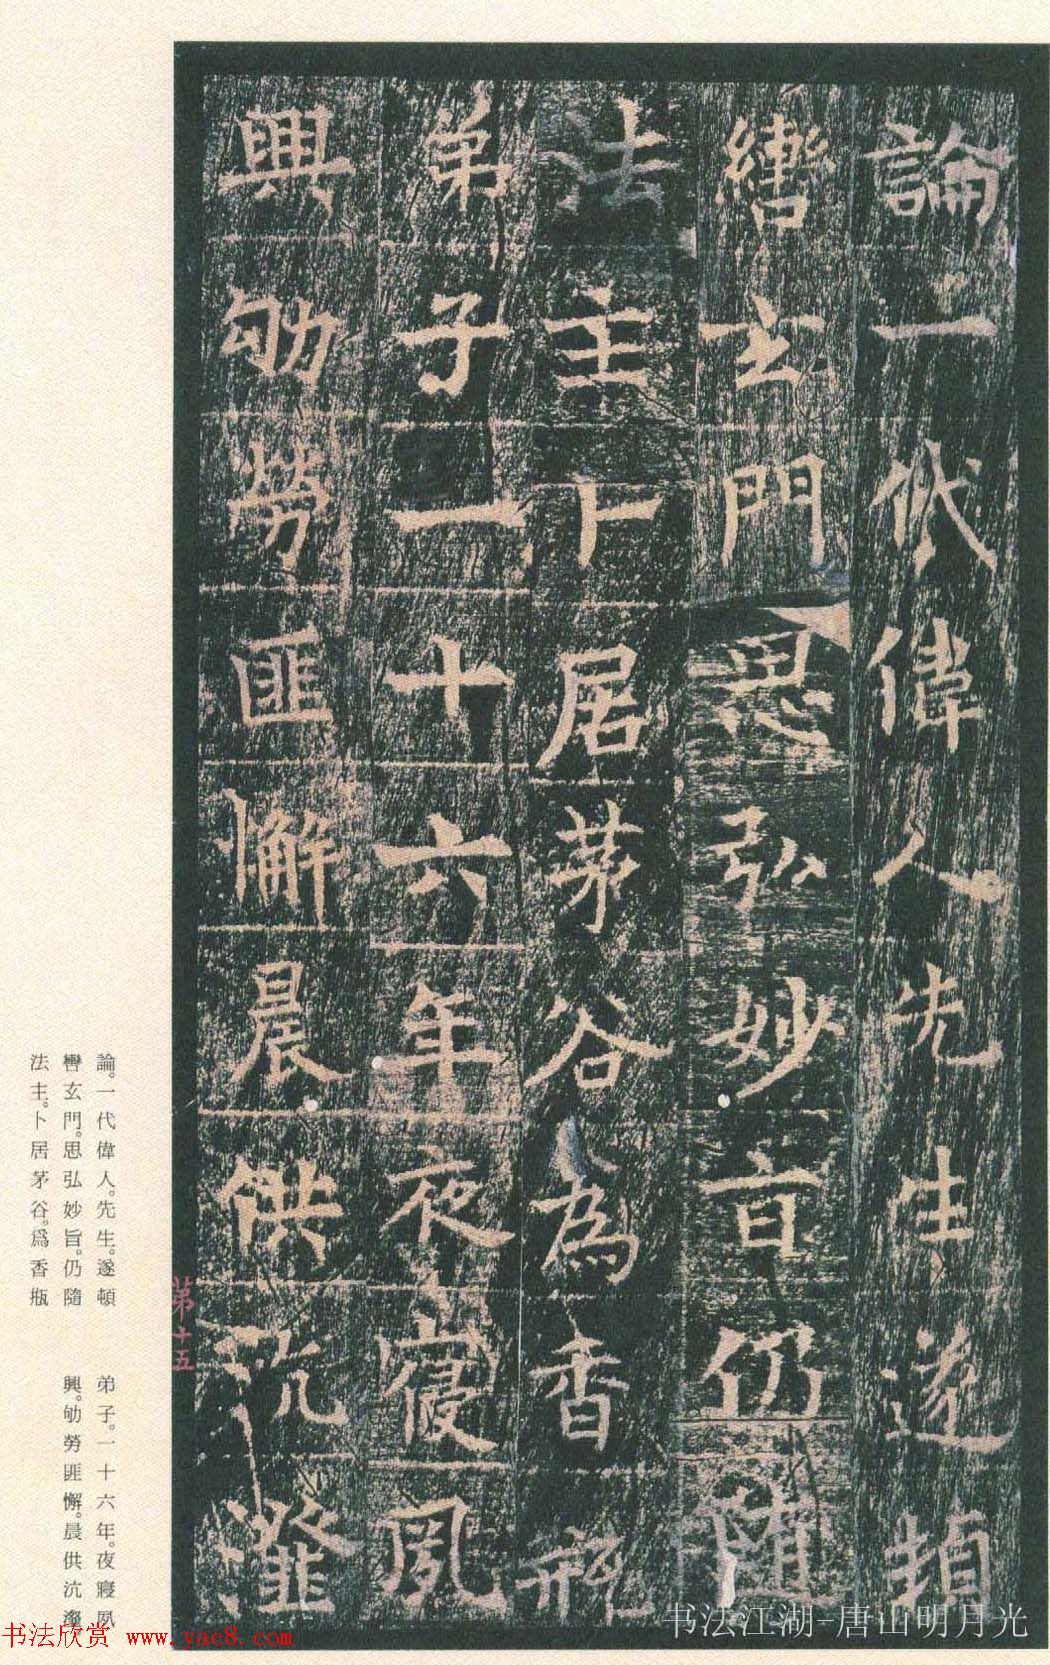 論一代偉人先生遂頓
轡玄門思弘妙旨仍隨
法主卜居茅谷為香瓶
弟子一十六年夜寢夙
興劬勞匪懈晨供沆瀣
論。一代偉人。先生。遂頓
轡玄門。思弘妙旨。仍隨
法主。卜居茅谷。爲香瓶
弟子。一十六年。夜寢夙
興。劬勞匪懈。晨供沆瀣
第十五
书法江湖-唐山明月光
书法欣赏 www.yac8.com